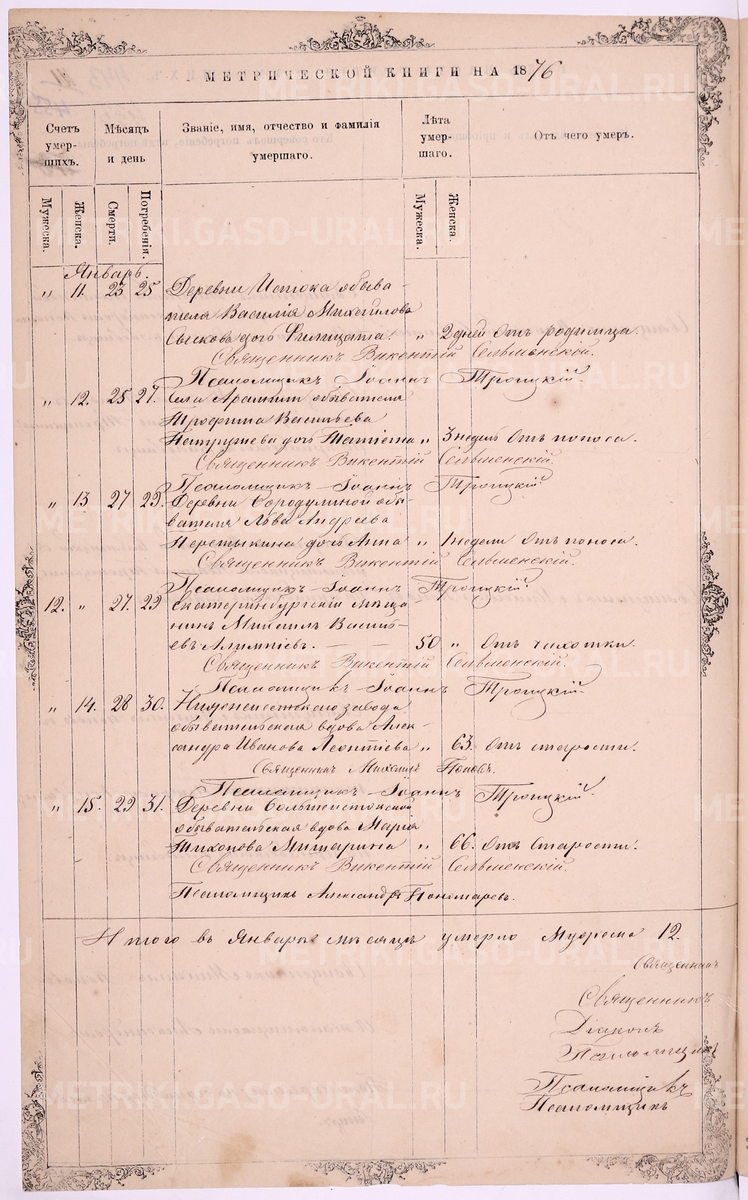 МЕТРИЧЕСКОЙ КНИГИ НА 1876
Счетъ умершихъ.
Мѣсяцъ и день
Званіе, имя, отчество и фамилія умершаго.
Лѣта умершаго.
Отъ чего умеръ.
Мужеска.
Женска.
Смерти.
Погребенія.
Мужеска.
Женска.
Январь.
" 11. 23 25 Деревни Истока обыва-
теля Василія Михайлова
дочь Филицата. " 2 дней Отъ родимца.
Священникъ Викентій
Псаломщикъ Іоаннъ Троицкій.
" 12. 25 27. Села Арамили обывателя
Трофима Васильева
дочь " 3 недель Отъ поноса.
Священникъ Викентій
Псаломщикъ Іоаннъ Троицкій
" 13 27 29. Деревни Бородулиной обы-
вателя Льва Андреева
дочь Анна " 1 недели Отъ поноса.
Священникъ Викентій
Псаломщикъ Іоаннъ Троицкій
12. " 27. 29 Екатеринбургскій мѣща-
нинъ Михаилъ Василь-
евъ 50 " Отъ чихотки.
Священникъ Викентій
Псаломщикъ Іоаннъ Троицкій
" 14. 28 30. Нижнеисетскаго завода
обывательская вдова Алек-
сандра Иванова Леонтіева " 63. Отъ старости.
Священникъ Михаилъ Поповъ.
Псаломщикъ Іоаннъ Троицкій.
" 15. 29 31. Деревни Большеистокской
обывательская вдова Марія
Тихонова " 66. Отъ старости.
Священникъ Викентій
Псаломщикъ Александръ Пономаревъ.
Итого въ Январѣ мѣсяцѣ умерло Мужеска 12.
Священникъ
Священникъ
Діаконъ
Псаломщикъ
Псаломщикъ
Псаломщикъ
METRIKI.GASO-URAL.RU